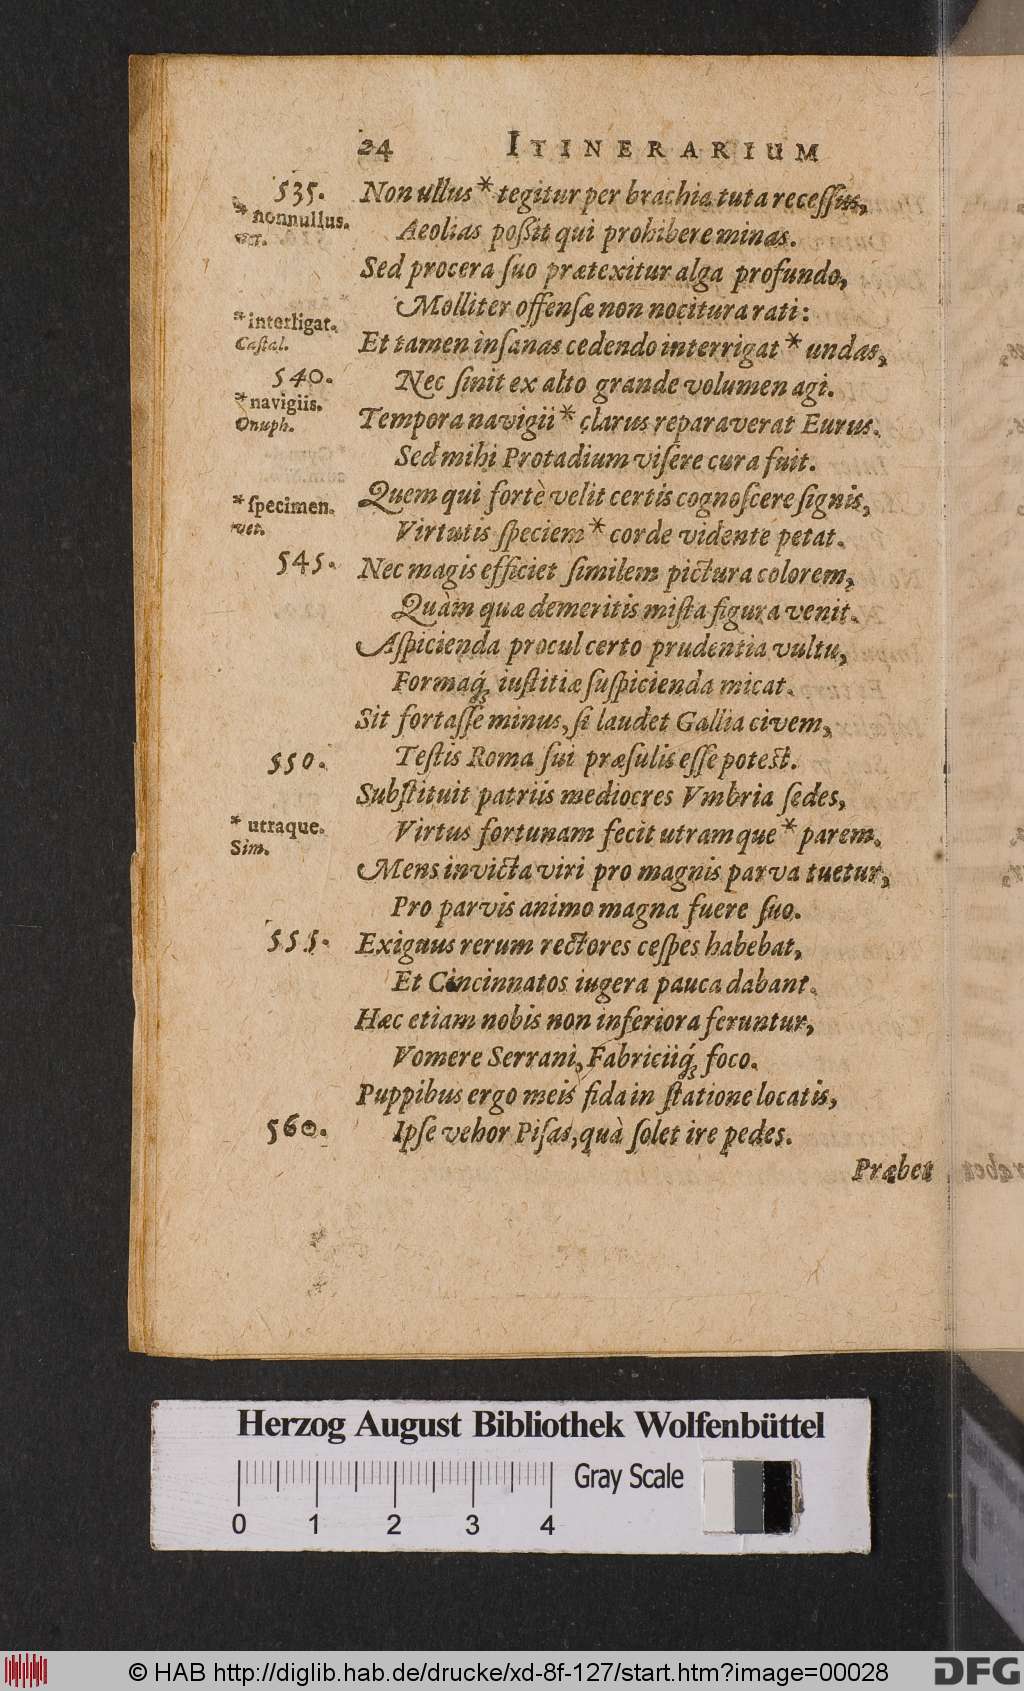 24 ITINERARIUM
535. Non ullus * tegitur per brachia tuta recessus,
* nonnullus.
Aeolias possit qui prohibere minas.
Sed procera suo prætexitur alga profundo,
Molliter offensæ non nocitura rati:
* interligat.
Castal.
Et tamen insanas cedendo interrigat * undas,
540. Nec sinit ex alto grande volumen agi.
* navigiis.
Onuph.
Tempora navigii * clarus reparaverat Eurus.
Sed mihi Protadium visere cura fuit.
Quem qui fortè velit certis cognoscere signis,
* specimen.
vet.
Virtutis speciem * corde vidente petat.
545. Nec magis efficiet similem pictura colorem,
Quàm quæ demeritis mista figura venit.
Aspicienda procul certo prudentia vultu,
Formaq́; iustitiæ suspicienda micat.
Sit fortasse minus, si laudet Gallia civem,
550. Testis Roma sui præsulis esse potest.
Substituit patriis mediocres Vmbria sedes,
* utraque.
Sim.
Virtus fortunam fecit utramque * parem.
Mens invicta viri pro magnis parva tuetur,
Pro parvis animo magna fuere suo.
555. Exiguus rerum rectores cespes habebat,
Et Cincinnatos iugera pauca dabant.
Hæc etiam nobis non inferiora feruntur,
Vomere Serrani, Fabriciiq́; foco.
Puppibus ergo meis fida in statione locatis,
560. Ipse vehor Pisas, quà solet ire pedes.
Præbet
Herzog August Bibliothek Wolfenbüttel
Gray Scale
0 1 2 3 4
© HAB http://diglib.hab.de/drucke/xd-8f-127/start.htm?image=00028
DFG